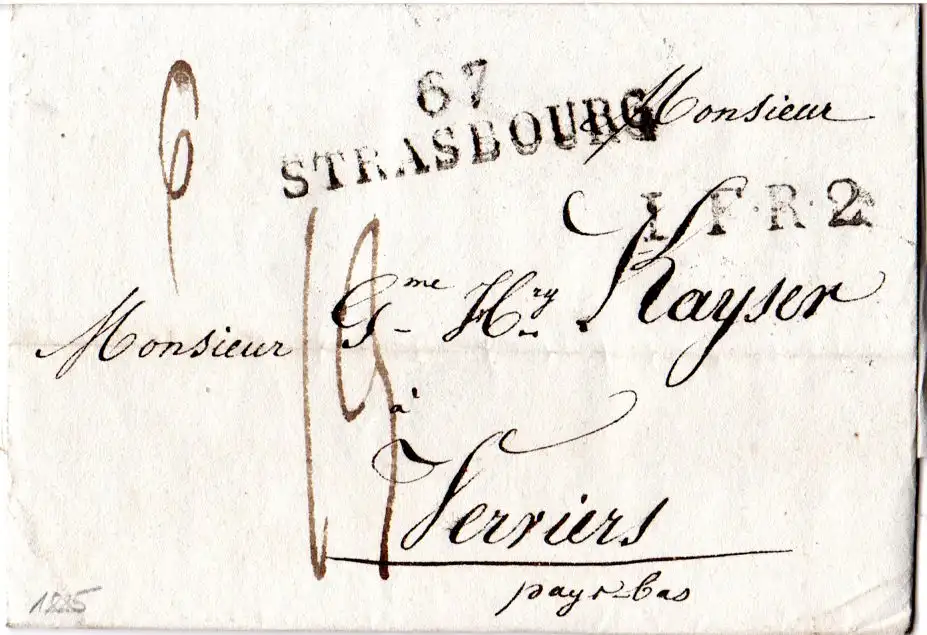 6
67
STRASBOURG
Monsieur
L.F.R.2
Monsieur
Gme Hry Kayser
à
Verviers
pays-bas
1825